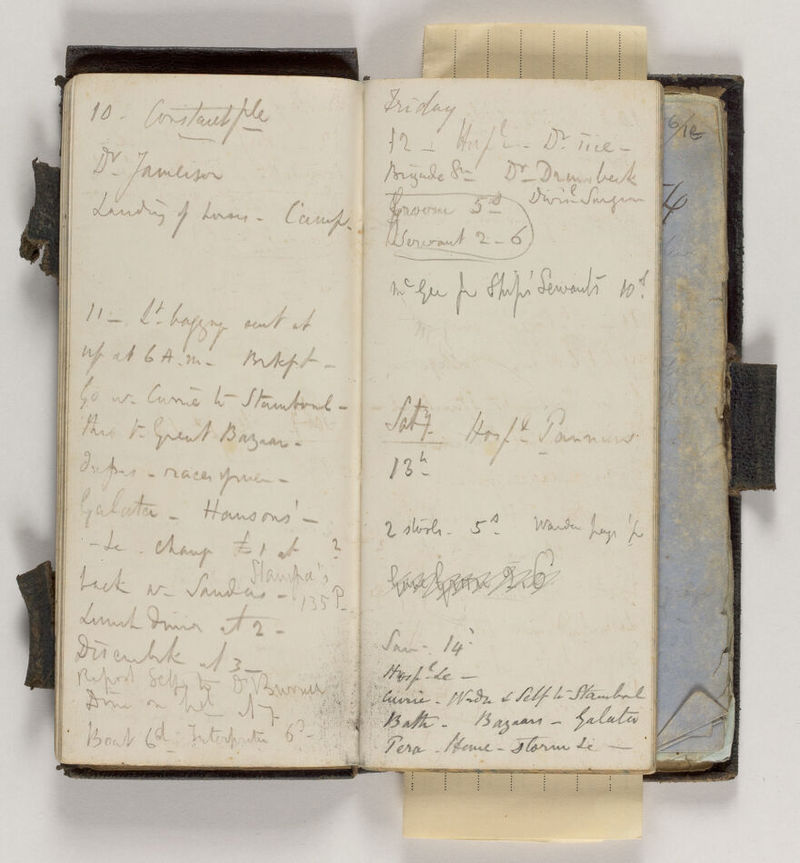 10 - Constantple
Dr Jameison
Landing of horses - Camp -
11 - Lt baggage sent at
up at 6 A.m - Brkft -
Go w. Currie to Stamboul -
thro t. Great Bazaar -
races
Galata - Hansons' -
- &c. change £1 at ?
Stampa's
back w. Sanders - 135 P
Lunch dinner at 2 -
Disembark at 3 -
Report Self to Dr
Dine on at 7
Boat 6d Interpreter 6d -
Friday
12 - Hospl - Dr Tice -
Brigade Sn Dr Drumbeck
Divisl Surgeon
Groom 5s
Servant 2 - 6
McGee for Ship's Servants 10s.
Saty Hospl
13h
2 stools - 5s.
Gave Groom 2.6
Sun - 14
Hospl &c -
Currie - & Self to Stamboul
Bath - Bazaars - Galata
Pera - Home - storm &c -